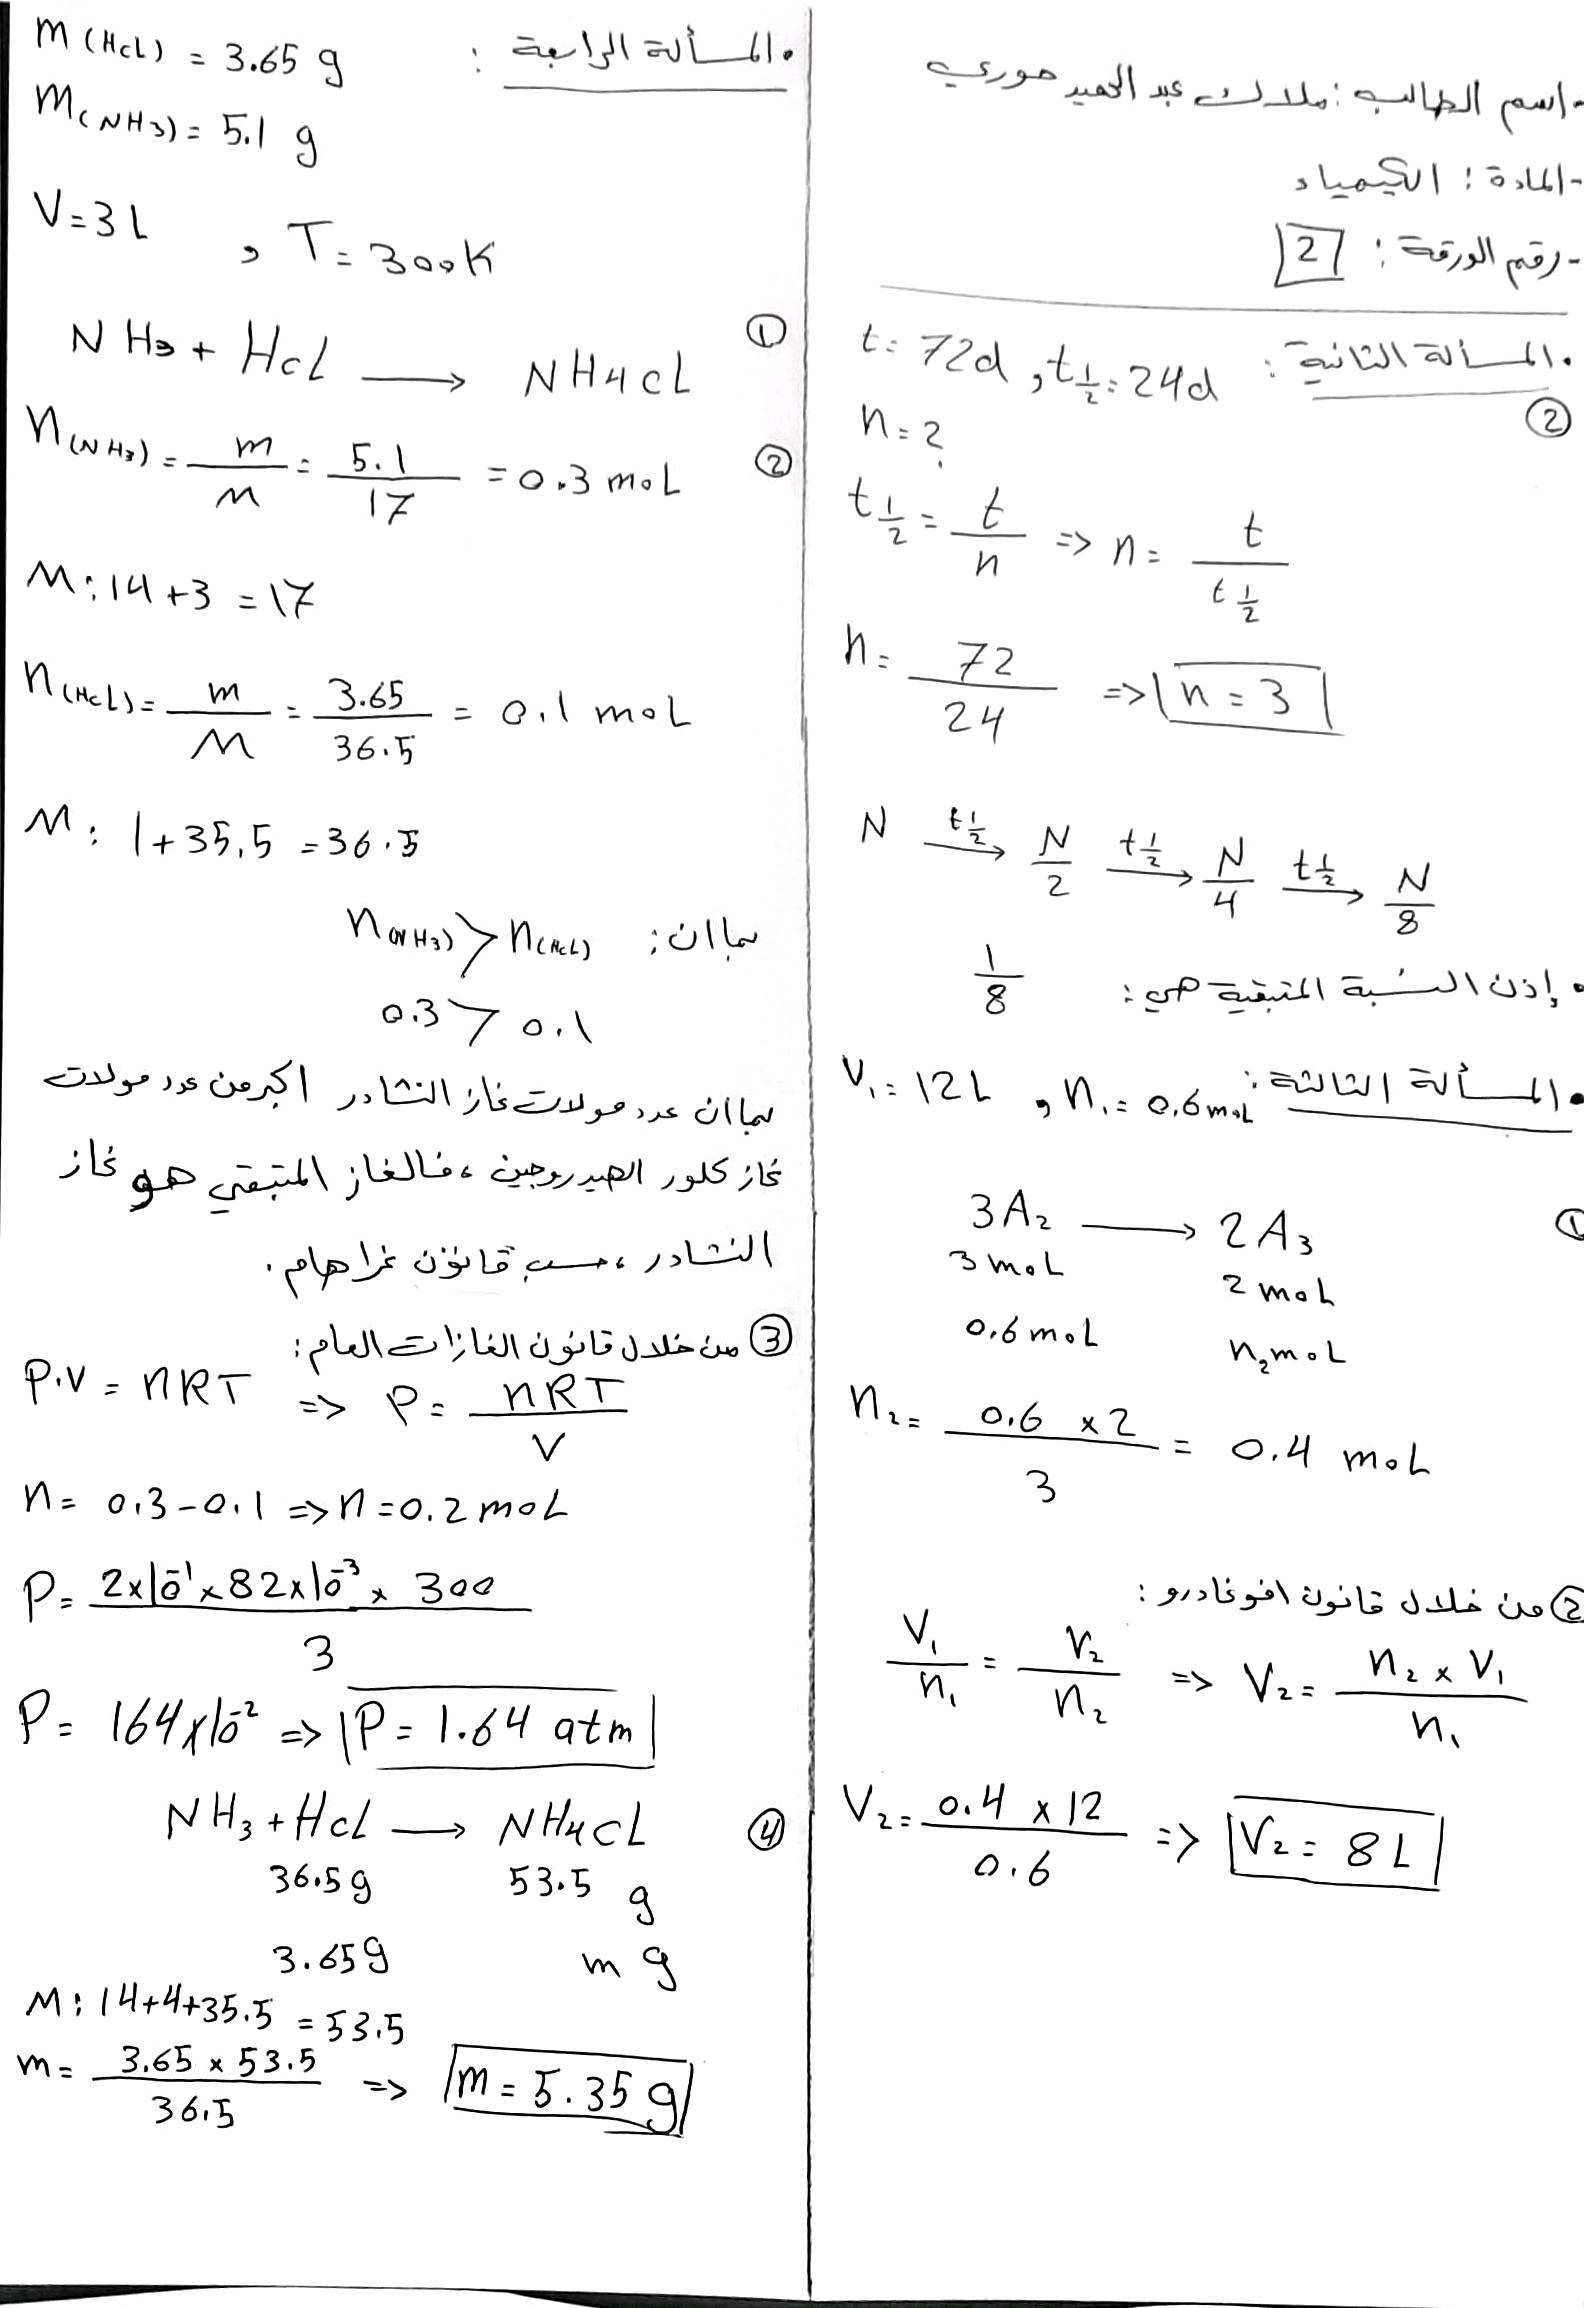 -اسم الطالب: ملاك عبد الحميد حوري
-المادة: الكيمياء
-رقم الورقة: 2
• المسألة الثانية: t = 72d , t 1/2 = 24d
② n = ?
t 1/2 = t/n => n = t/(t 1/2)
n = 72/24 => n = 3
N —t 1/2→ N/2 —t 1/2→ N/4 —t 1/2→ N/8
• إذن النسبة المتبقية هي: 1/8
• المسألة الثالثة: V₁ = 12L , n₁ = 0.6 moL
① 3A₂ ⟶ 2A₃
3 moL 2 moL
0.6 moL n₂ moL
n₂ = (0.6 × 2)/3 = 0.4 moL
② من خلال قانون افوغادرو:
V₁/n₁ = V₂/n₂ => V₂ = (n₂ × V₁)/n₁
V₂ = (0.4 × 12)/0.6 => V₂ = 8 L
• المسألة الرابعة: m(HcL) = 3.65 g
m(NH₃) = 5.1 g
V = 3L , T = 300K
① NH₃ + HcL ⟶ NH₄cL
② n(NH₃) = m/M = 5.1/17 = 0.3 moL
M: 14 + 3 = 17
n(HcL) = m/M = 3.65/36.5 = 0.1 moL
M: 1 + 35.5 = 36.5
بما ان: n(NH₃) > n(HcL)
0.3 > 0.1
بما ان عدد مولات غاز النشادر اكبر من عدد مولات
غاز كلور الهيدروجين، فالغاز المتبقي هو غاز
النشادر، حسب قانون غراهام.
③ من خلال قانون الغازات العام:
P.V = nRT => P = nRT/V
n = 0.3 - 0.1 => n = 0.2 moL
P = (2×10⁻¹ × 82×10⁻³ × 300)/3
P = 164×10⁻² => P = 1.64 atm
④ NH₃ + HcL ⟶ NH₄CL
36.5g 53.5 g
3.65g m g
M: 14+4+35.5 = 53.5
m = (3.65 × 53.5)/36.5 => m = 5.35 g